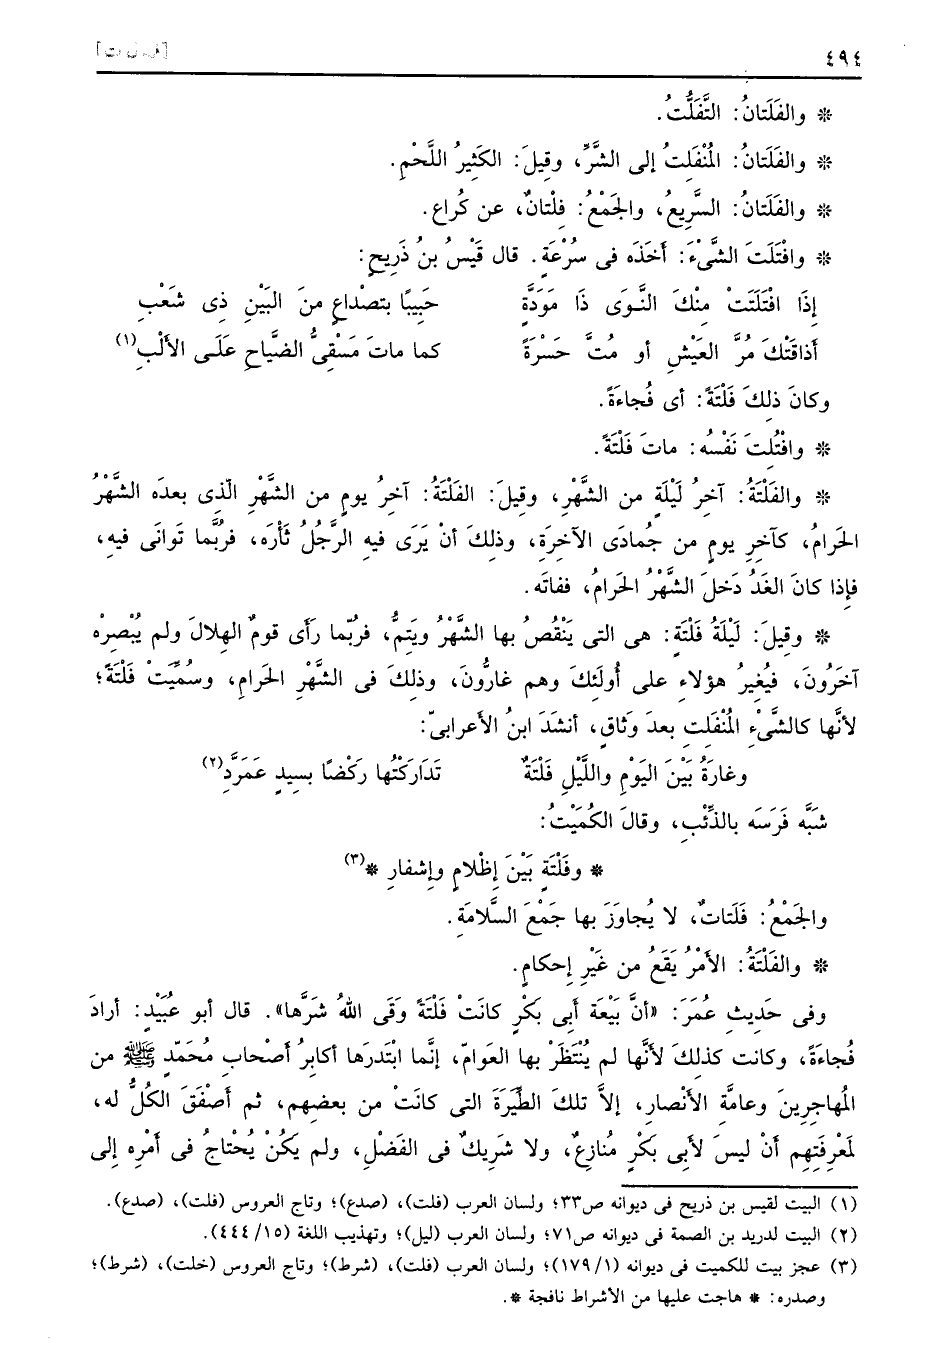 ٤٩٤ [ت ل ف]
* والفَلَتانُ: التَّفَلُّتُ.
* والفَلَتانُ: المُنْفَلِتُ إلى الشَّرِّ، وقِيلَ: الكَثِيرُ اللَّحْمِ.
* والفَلَتانُ: السَّرِيعُ، والجَمْعُ: فِلْتانٌ، عن كُراع.
* وافْتَلَتَ الشَّىْءَ: أخَذَه فى سُرْعَةٍ. قال قَيْسُ بنُ ذَرِيحٍ:
إذَا افْتَلَتَتْ مِنْكَ النَّوَى ذَا مَوَدَّةٍ حَبِيبًا بتَصْداعٍ منَ البَيْنِ ذِى شَعْبِ
أذاقَتْكَ مُرَّ العَيْشِ أو مُتَّ حَسْرَةً كما ماتَ مَسْقِىُّ الضَّياحِ عَلَى الأَلْبِ(١)
وكانَ ذلِكَ فَلْتَةً: أى فُجاءَةً.
* وافْتُلِتَ نَفْسُه: ماتَ فَلْتَةً.
* والفَلْتَةُ: آخرُ لَيْلَةٍ من الشَّهْرِ، وقِيلَ: الفَلْتَةُ: آخِرُ يومٍ من الشَّهْرِ الّذِى بعدَه الشَّهْرُ
الحَرامُ، كآخِرِ يومٍ من جُمادَى الآخِرَةِ، وذلِكَ أنْ يَرَى فيهِ الرَّجُلُ ثَأْرَه، فربَّما تَوانَى فيهِ،
فإذا كانَ الغَدُ دَخلَ الشَّهْرُ الحَرامُ، ففاتَه.
* وقِيلَ: لَيْلَةٌ فَلْتَةٍ: هى التى يَنْقُصُ بها الشَّهْرُ ويَتِمُّ، فربَّما رَأى قومٌ الهِلالَ ولم يُبْصِرْه
آخَرُونَ، فيُغِيرُ هؤلاءِ على أُولَئِكَ وهم غارُّونَ، وذلكَ فى الشَّهْرِ الحَرامِ، وسُمِّيَتْ فَلْتَةً؛
لأنَّها كالشَّىْءِ المُنْفَلِتِ بعدَ وَثاقٍ، أنشَدَ ابنُ الأعرابىّ:
وغارَةُ بَيْنَ اليَوْمِ واللَّيْلِ فَلْتَةٌ تَدَارَكْتُها رَكْضًا بسِيدٍ عَمَرَّدِ(٢)
شبَّه فَرَسَه بالذِّئْبِ، وقالَ الكُمَيْتُ:
* وفَلْتَةٍ بَيْنَ إظْلامٍ وإشفارِ *(٣)
والجَمْعُ: فَلَتاتٌ، لا يُجاوَزُ بها جَمْعَ السَّلامَةِ.
* والفَلْتَةُ: الأمْرُ يَقَعُ من غَيْرِ إحكامٍ.
وفى حَدِيثِ عُمَرَ: «أنَّ بَيْعَةَ أبى بَكْرٍ كانَتْ فَلْتَةً وَقَى اللهُ شَرَّها». قال أبو عُبَيْدٍ: أرادَ
فُجاءَةً، وكانت كذلِكَ لأنَّها لم يُنْتَظَرْ بها العَوامّ، إنَّما ابْتَدرَها أكابرُ أصْحابِ مُحَمّدٍ ﷺ من
المُهاجِرِينَ وعامَّةِ الأنْصارِ، إلاَّ تلكَ الطَّيْرَةَ التى كانَتْ من بعضِهِم، ثم أصْفَقَ الكُلُّ له،
لمَعْرِفَتِهِم أنْ ليسَ لأبى بَكْرٍ مُنازِعٌ، ولا شَرِيكٌ فى الفَضْلِ، ولم يَكُنْ يُحْتاجُ فى أمْرِه إلى
(١) البيت لقيس بن ذريح فى ديوانه ص٣٣؛ ولسان العرب (فلت)، (صدع)؛ وتاج العروس (فلت)، (صدع).
(٢) البيت لدريد بن الصمة فى ديوانه ص٧١؛ ولسان العرب (ليل)؛ وتهذيب اللغة (١٥/ ٤٤٤).
(٣) عجز بيت للكميت فى ديوانه (١/ ١٧٩)؛ ولسان العرب (فلت)، (شرط)؛ وتاج العروس (خلت)، (شرط)؛
وصدره: * هاجت عليها من الأشراط نافجة *.